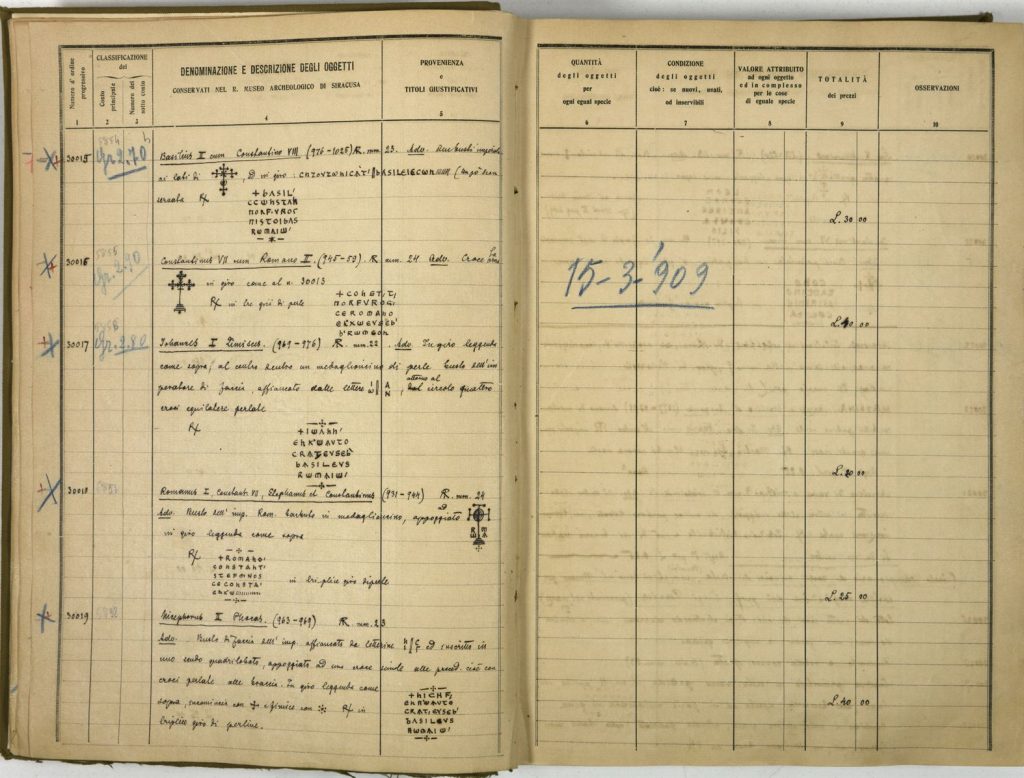 Numero d'ordine progressivo
CLASSIFICAZIONE
del
Conto principale
Numero del sotto conto
DENOMINAZIONE E DESCRIZIONE DEGLI OGGETTI
CONSERVATI NEL R. MUSEO ARCHEOLOGICO DI SIRACUSA
PROVENIENZA
e
TITOLI GIUSTIFICATIVI
1 2 3 4 5
30015 Gr. 2.70 Basilius I cum Constantino VIII. (976-1025) AR. mm. 23. Adv. due busti imperiali
ai lati di , ed in giro :
+ bASIL'
CCWNSTAN
ПORFVROS
ПISTOIbAS
RWMAIW'
30016 Gr. 2.90 Constantinus VII cum Romano II. (945-59). AR mm. 24 Adv. Croce
in giro come al n. 30013
Rx in tre giri di perle
ПORFVROG,
CEROMANO
30017 Gr. 2.80 Iohannes I Zimisces. (969-976) AR. mm. 22. Adv. In giro leggenda
come sopra; al centro dentro un medaglioncino di perle busto dell'im
peratore di faccia, affiancato dalle lettere , attorno al circolo quattro
croci equilatere perlate
Rx
+IWANN'
ENXWAVTO
CRATEVSEb'
bASILEVS
RWMAIW'
30018 Romanus I, Constant. VII, Stephanus et Constantinus (931-944) AR. mm. 24
Adv. Busto dell'imp. Rom. barbuto in medaglioncino, appoggiato ad
in giro leggenda come sopra
Rx
+ROMANO'
CONSTANT'
STEFANOS
CECONSTA'
in triplice giro di perle
30019 Nicephorus II Phocas. (963-969) AR. mm. 23
Adv. Busto di faccia dell'imp. affiancato da letterine ed inscritto in
uno scudo quadrilobato, appoggiato ad una croce simile alle preced. cioè con
croci perlate alle braccia. In giro leggenda come
sopra, incomincia con e finisce con Rx in
triplice giro di perline.
+NICHF,
ENXWAVTO
CRATEVSEb'
BASILEVS
RWMAIW'
QUANTITÀ
degli oggetti
per
ogni egual specie
CONDIZIONE
degli oggetti
cioè: se nuovi, usati,
od inservibili
VALORE ATTRIBUITO
ad ogni oggetto
ed in complesso
per le cose
di eguale specie
TOTALITÀ
dei prezzi
OSSERVAZIONI
6 7 8 9 10
L. 30 00
15-3-909
L. 40 00
L. 20 00
L. 25 00
L. 40 00